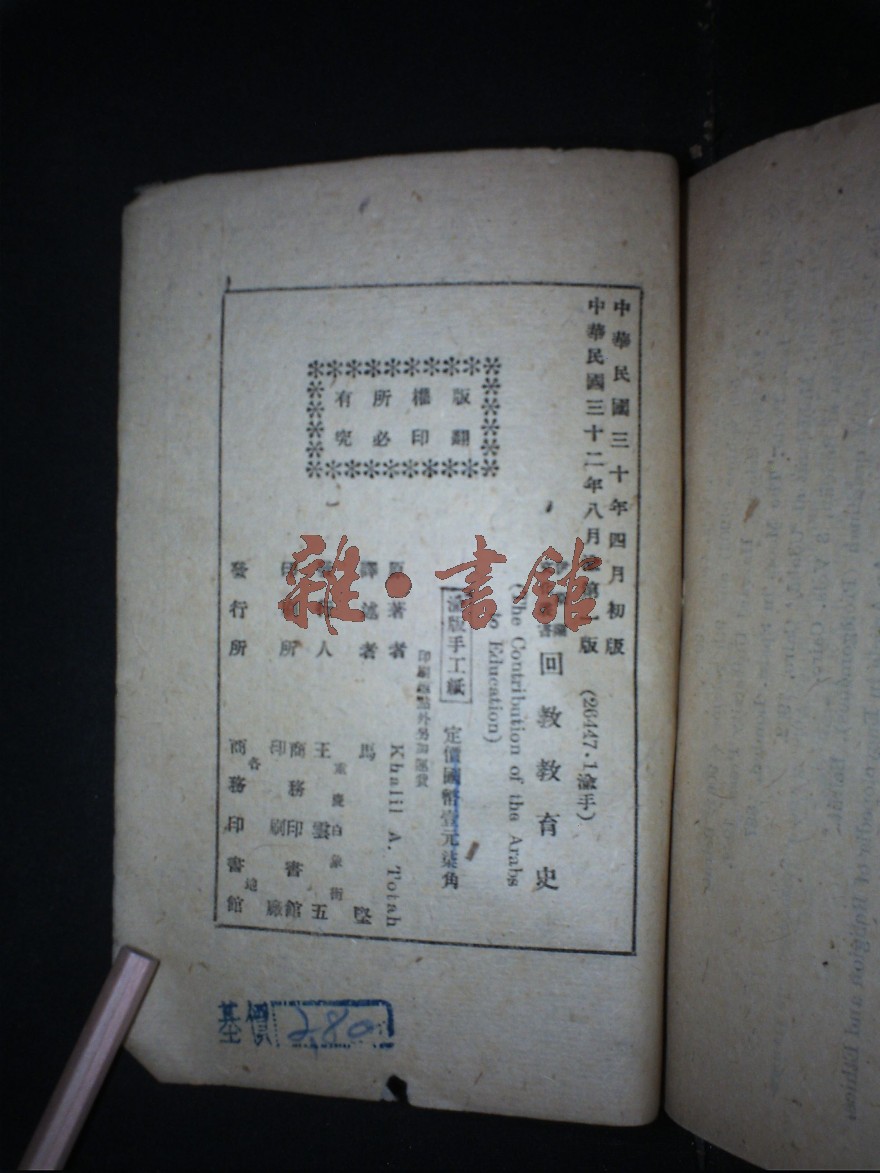 中華民國三十年四月初版
中華民國三十二年八月渝第一版
(26447·1渝手)
回教教育史
(The Contribution of the Arabs
to Education)
渝版手工紙
定價國幣壹元柒角
印刷地點外另加運費
原著者 Khalil A. Totah
譯述者 馬堅
王雲五
重慶白象街
商務印書館
印刷廠
發行所 各地
商務印書館
版權所有
翻印必究
基價 280
雜·書館
Religion and Ethics